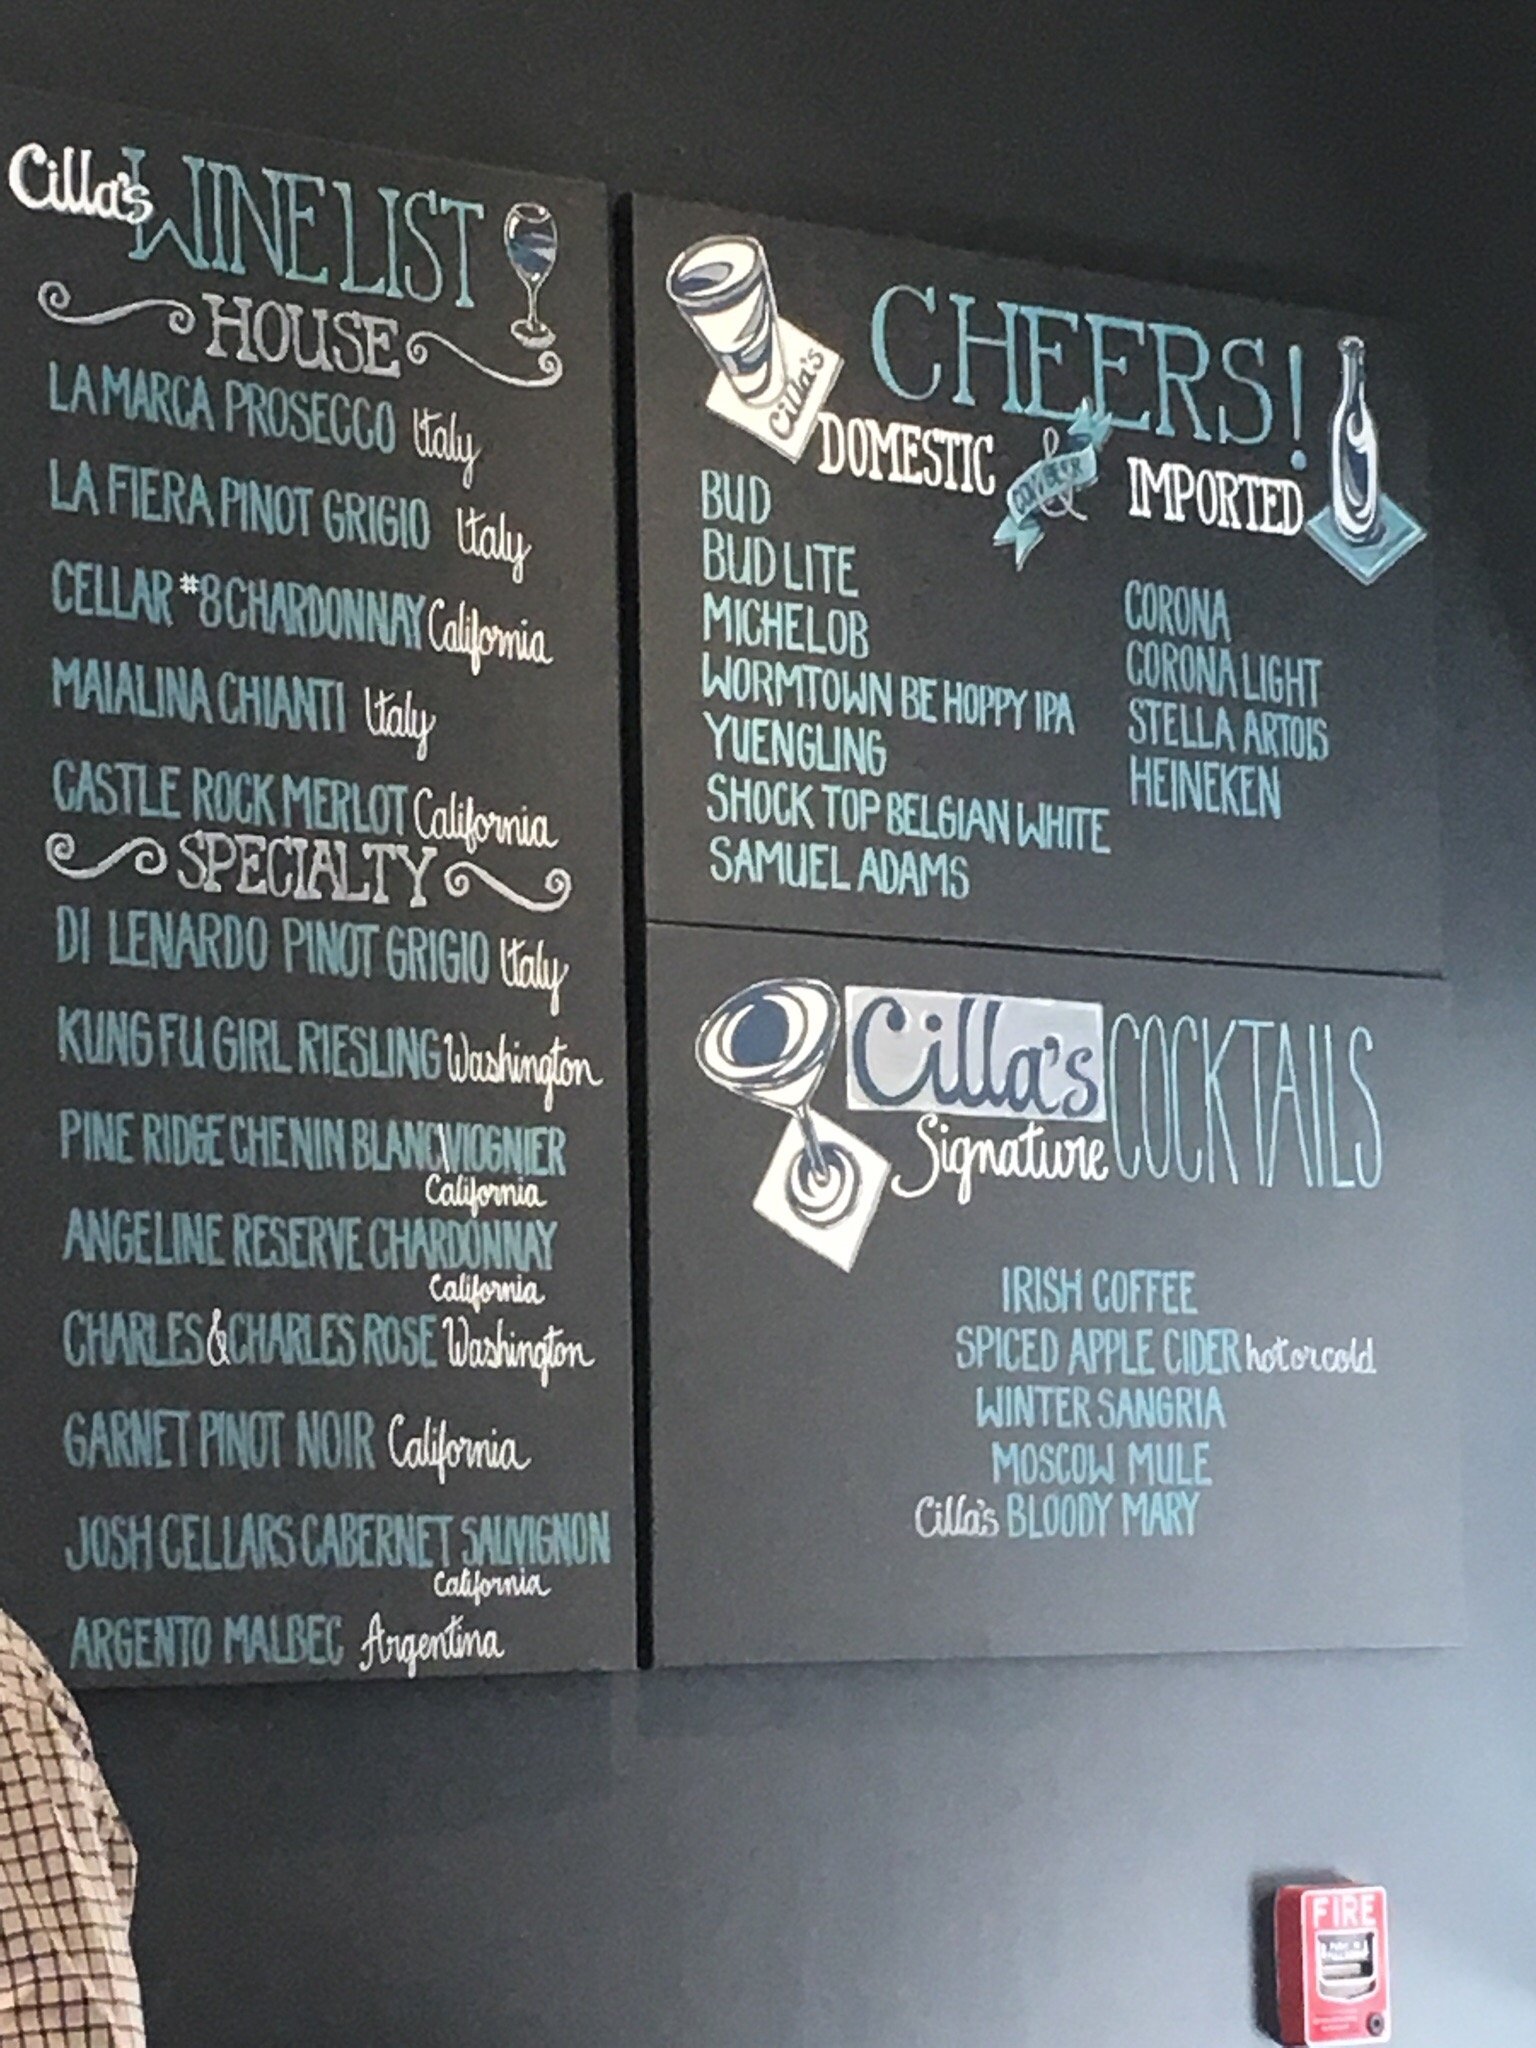 Cilla's WINE LIST
HOUSE
LA MARCA PROSECCO Italy
LA FIERA PINOT GRIGIO Italy
CELLAR #8 CHARDONNAY California
MAIALINA CHIANTI Italy
CASTLE ROCK MERLOT California
SPECIALTY
DI LENARDO PINOT GRIGIO Italy
KUNG FU GIRL RIESLING Washington
PINE RIDGE CHENIN BLANC\VIOGNIER
California
ANGELINE RESERVE CHARDONNAY
California
CHARLES & CHARLES ROSE Washington
GARNET PINOT NOIR California
JOSH CELLARS CABERNET SAUVIGNON
California
ARGENTO MALBEC Argentina
Cilla's
CHEERS!
DOMESTIC & IMPORTED
BUD
BUD LITE
MICHELOB
WORMTOWN BE HOPPY IPA
YUENGLING
SHOCK TOP BELGIAN WHITE
SAMUEL ADAMS
CORONA
CORONA LIGHT
STELLA ARTOIS
HEINEKEN
Cilla's
Signature COCKTAILS
IRISH COFFEE
SPICED APPLE CIDER hot or cold
WINTER SANGRIA
MOSCOW MULE
Cilla's BLOODY MARY
FIRE